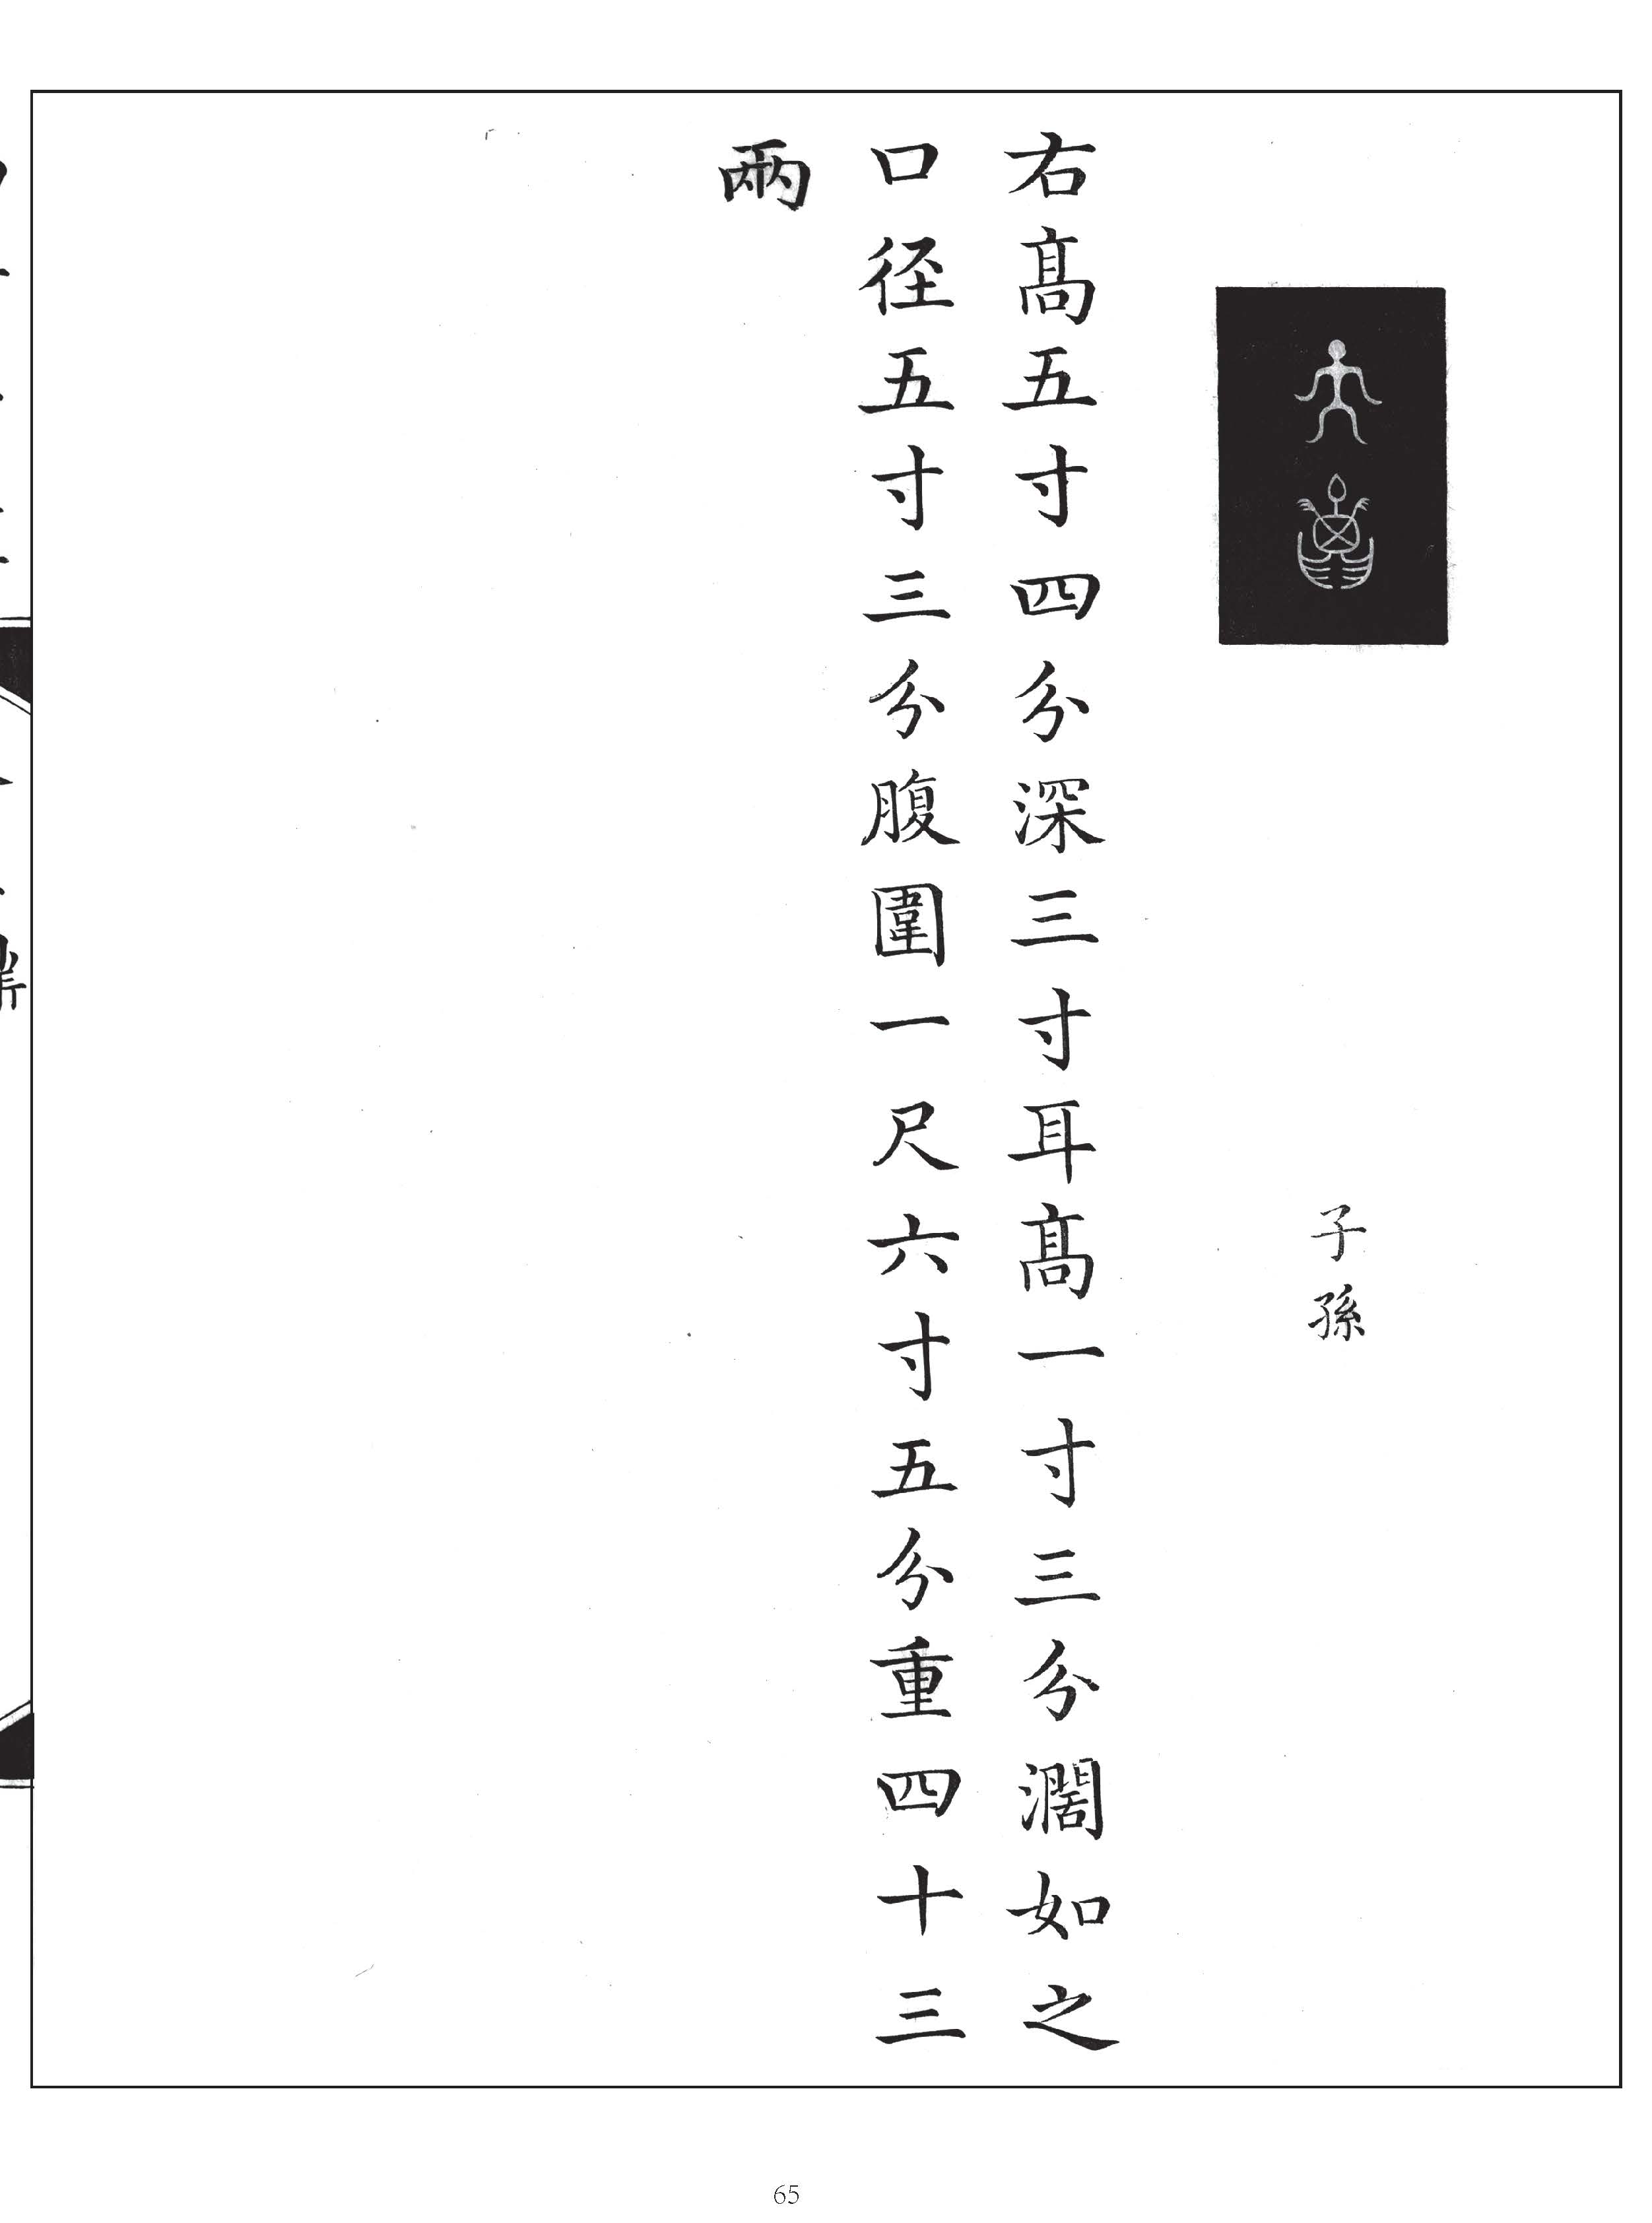 子孫
右髙五寸四分深三寸耳髙一寸三分濶如之
口径五寸三分腹圍一尺六寸五分重四十三
兩
65